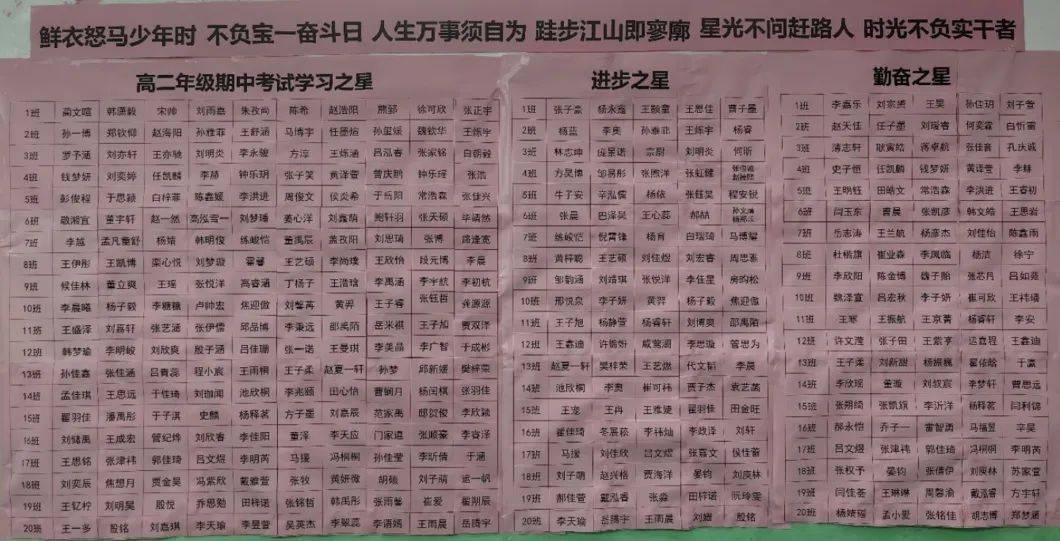 鲜衣怒马少年时 不负宝一奋斗日 人生万事须自为 跬步江山即寥廓 星光不问赶路人 时光不负实干者
高二年级期中考试学习之星
1班 蔺文暄 韩潇毅 宋帅 刘雨嘉 朱孜尚 陈希 赵浩阳 熊郅 徐可欣 张正宇
2班 孙一博 郑钦仰 赵海阳 孙雅菲 王舒涵 马博宇 任墨焓 孙里媛 魏钦华 王烁宇
3班 罗予涵 刘亦轩 王亦驰 刘明炎 李永骏 方淳 王烁涵 吕泓春 张家铭 白朝毅
4班 钱梦妍 刘奕婷 任凯麟 李赫 钟乐玥 张子笑 黄译萱 曾庆鹏 钟乐瑶 张浩
5班 彭俊程 于思颖 白梓菲 陈鑫媛 李洪进 周俊文 侯炎希 于岳阳 常浩森 张佳兴
6班 敬湘宜 董宇轩 赵一然 高泓雪一 刘梦瑾 姜心洋 刘鑫萌 鲍轩羽 张天硕 毕靖然
7班 李越 孟凡童舒 杨婧 韩明俊 练峻恺 董禹辰 盖孜阳 刘思琦 张博 路逢宽
8班 王伊彤 王凯博 栾心悦 刘梦璇 霍睿 王艺硕 李尚璞 王欣怡 段元博 李晨
9班 候佳林 董立爽 王瑶 张悦洋 高睿涵 丁杨子 王浩琀 李禹涵 李宇航 李初杭
10班 李晨曦 杨子毅 李糖糖 卢帅宏 焦迎傲 刘馨苒 黄羿 王子睿 张钰哲 龚源源
11班 王盛泽 刘嘉轩 张艺涵 张伊儒 邱岳博 李秉远 邵禹陌 岳米祺 王子旭 贾双泽
12班 韩梦瑜 李明峻 刘欣爽 殷子涵 吕佳珊 张一诺 王曼琪 李美晶 李广智 于成彬
13班 孙佳鑫 张佳涵 吕青蕊 程小宸 王雨桐 王子柔 赵夏一轩 孙梦 邱新媛 樊梓荣
14班 孟佳琪 王思远 于佳琦 刘珈闻 池欣航 李兆颐 田心怡 曹娴月 杨闰棋 张羽佳
15班 翟羽佳 潘禹彤 于子淇 史麟 杨释茗 方子墨 刘嘉辰 范家禹 邸贺俊 李欣颖
16班 刘储禹 王成宏 管纪烨 刘欣睿 李佳阳 董泽 李天应 门家道 张顺豪 李睿泽
17班 王思铭 张津祎 郭佳琦 吕文煜 李明芮 马援 冯桐桐 孙佳莹 李昕倩 于涵
18班 刘奕辰 焦想月 贾金昊 冯紫欣 戴雅萱 张牧 黄妍微 胡硕 刘子萌 运一帆
19班 王钇柠 刘明昊 殷悦 乔思勤 田梓诺 张锦哲 韩禹彤 张雨馨 崔爱 翟朔辰
20班 王一多 殷铭 刘嘉琪 李天瑜 李昱萱 吴英杰 李翠蕊 李语嫣 王雨晨 岳腾宇
进步之星
1班 张子豪 杨永鑫 王颢童 王思佳 曹子墨
2班 杨蓝 李奥 孙泰菲 王烁宇 杨睿
3班 林志坤 庞景诺 宗尉 刘明炎 何昕
4班 方昊博 邹易彤 张煦洋 张虹睫
5班 牛子安 辛泓儒 杨依 张钰昊 程安锐
6班 张晨 巴泽昊 王心蕊 郝喆
7班 练峻恺 倪霄锋 杨育 白瑞琦 马博玺
8班 黄梓聪 王艺硕 刘佳煜 刘宏睿 周思寒
9班 邹韵涵 刘靖琪 张悦洋 李佳星 房昀松
10班 邢悦泉 李子妍 黄羿 杨子毅 焦迎傲
11班 王子旭 杨静萱 杨睿轩 刘博奥 邵禹陌
12班 王鑫迪 许锦妡 咸莺涵 李思璇 管思为
13班 赵夏一轩 樊梓荣 王艺燃 代文韬 李晨
14班 池欣航 李奥 崔可祎 贾子杰 袁艺菡
15班 王宠 王冉 王雅婕 翟羽佳 田金旺
16班 翟佳琦 冬展菘 李祎灿 李政泽 刘轩
17班 马援 刘佳欣 吕文煜 张嘉文 侯佳蕾
18班 刘子萌 赵兴格 贾海洋 晏钧 刘庚林
19班 郝佳萱 戴泓春 张淼 田梓诺 阮玲雯
20班 李天瑜 岳腾宇 王雨晨 刘媚 殷铭
勤奋之星
1班 李嘉乐 刘宗赟 王昊 孙仕玥 刘子萱
2班 赵天佳 任子墨 刘瑷睿 何奕霏 白忻霤
3班 薄志轩 耿寅皓 蒋卓航 张佳音 孔庆诚
4班 史子恒 任凯麟 钱梦妍 黄译萱 李赫
5班 王明钰 田皓文 常浩森 李洪进 王睿初
6班 闫玉东 曹晨 张凯彦 韩文皓 王思岩
7班 岳志涛 王兰航 杨彦杰 刘佳怡 陈鑫雨
8班 杜楷旗 崔业森 李凤临 杨洁 徐宁
9班 李欣阳 陈金博 魏子贻 张芯凡 吕如尧
10班 魏泽宣 吕宏秋 李子妍 崔可欣 王祎禧
11班 王寒 王振航 王京菁 杨睿轩 李安
12班 许文滢 张子田 王紫亭 迟嘉程 王鑫迪
13班 王子柔 刘新甜 杨振巍 翟依晗 于瀛
14班 李欣瑶 董璇 刘叔宸 李梦轩 曾思远
15班 张朔绮 张凯旗 李沂洋 杨释茗 闫利锦
16班 郝永恺 乔子一 雷智勇 马福昱 辛昊
17班 吕文煜 张津祎 郭佳琦 冯桐桐 李明芮
18班 张权予 晏钧 张倩伊 刘庚林 苏家萱
19班 闫佳荟 王琳琳 周馨渝 戴泓睿 方宇轩
20班 杨婧瑶 孟小爱 张铭佳 胡志博 郑梦涵